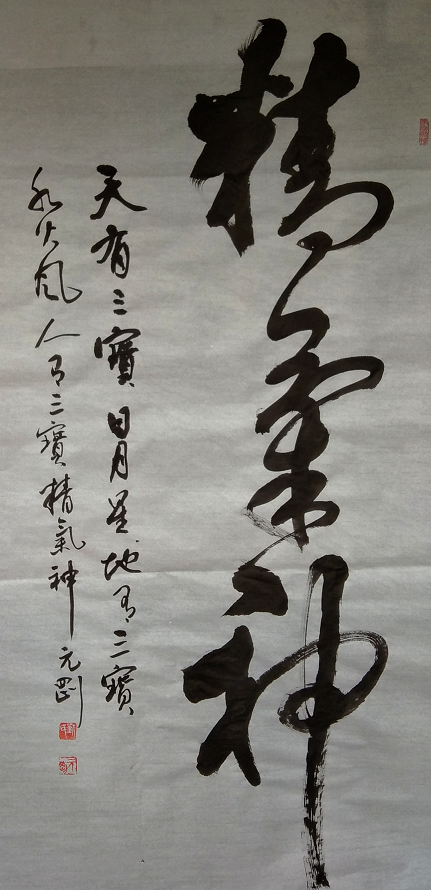 精氣神
天有三寶日月星地有三寶
水火風人有三寶精氣神元剛